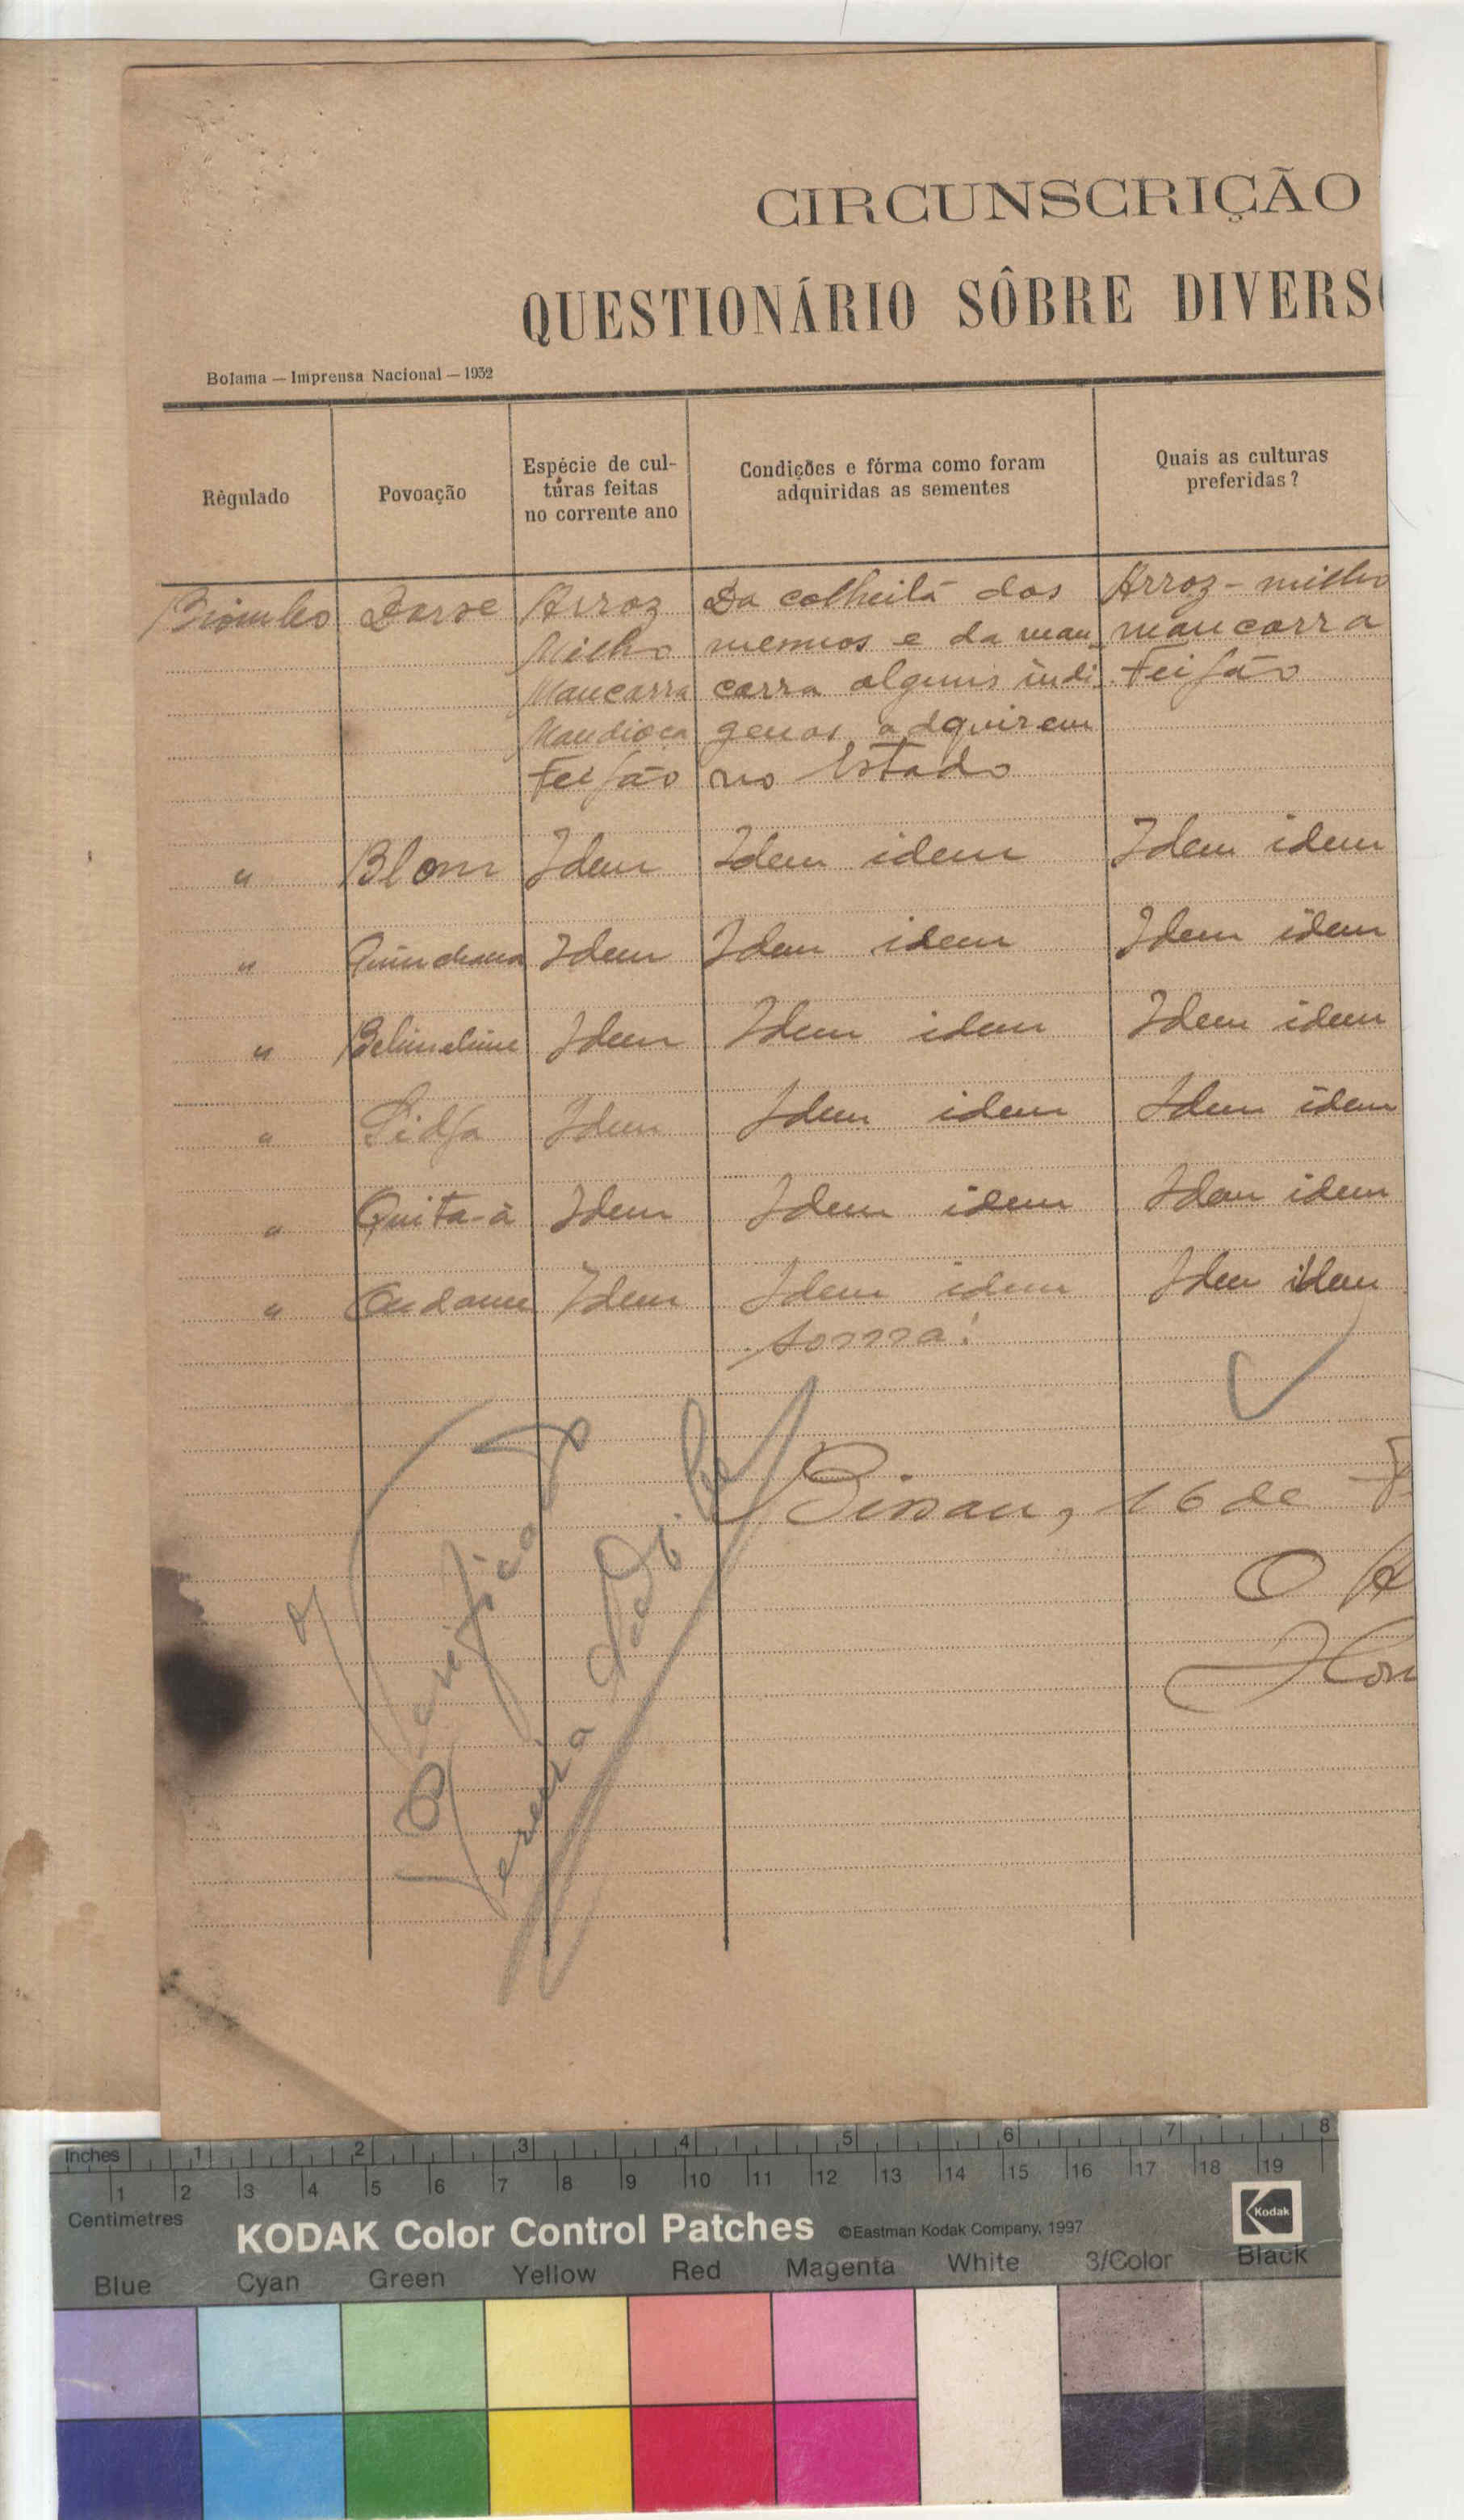 CIRCUNSCRIÇÃO
QUESTIONÁRIO SÔBRE DIVERS
Bolama — Imprensa Nacional — 1932
Règulado
Povoação
Espécie de cul-
turas feitas
no corrente ano
Condições e fórma como foram
adquiridas as sementes
Quais as culturas
preferidas?
Biombo Dorse Arroz Da colheita dos Arroz - milho
Milho mesmos e da man- mancarra
Mancarra carra alguns indi- Feijão
Mandioca genas adquirem
Feijão no Estado
" Blom Idem Idem idem Idem idem
" Idem Idem idem Idem idem
" Idem Idem idem Idem idem
" Idem Idem idem Idem idem
" Quita-à Idem Idem idem Idem idem
" Idem Idem idem Idem idem
Bissau, 16 de
O
Inches 1 2 3 4 5 6 7 8
1 2 3 4 5 6 7 8 9 10 11 12 13 14 15 16 17 18 19
Centimetres
KODAK Color Control Patches ©Eastman Kodak Company, 1997 Kodak
Blue Cyan Green Yellow Red Magenta White 3/Color Black